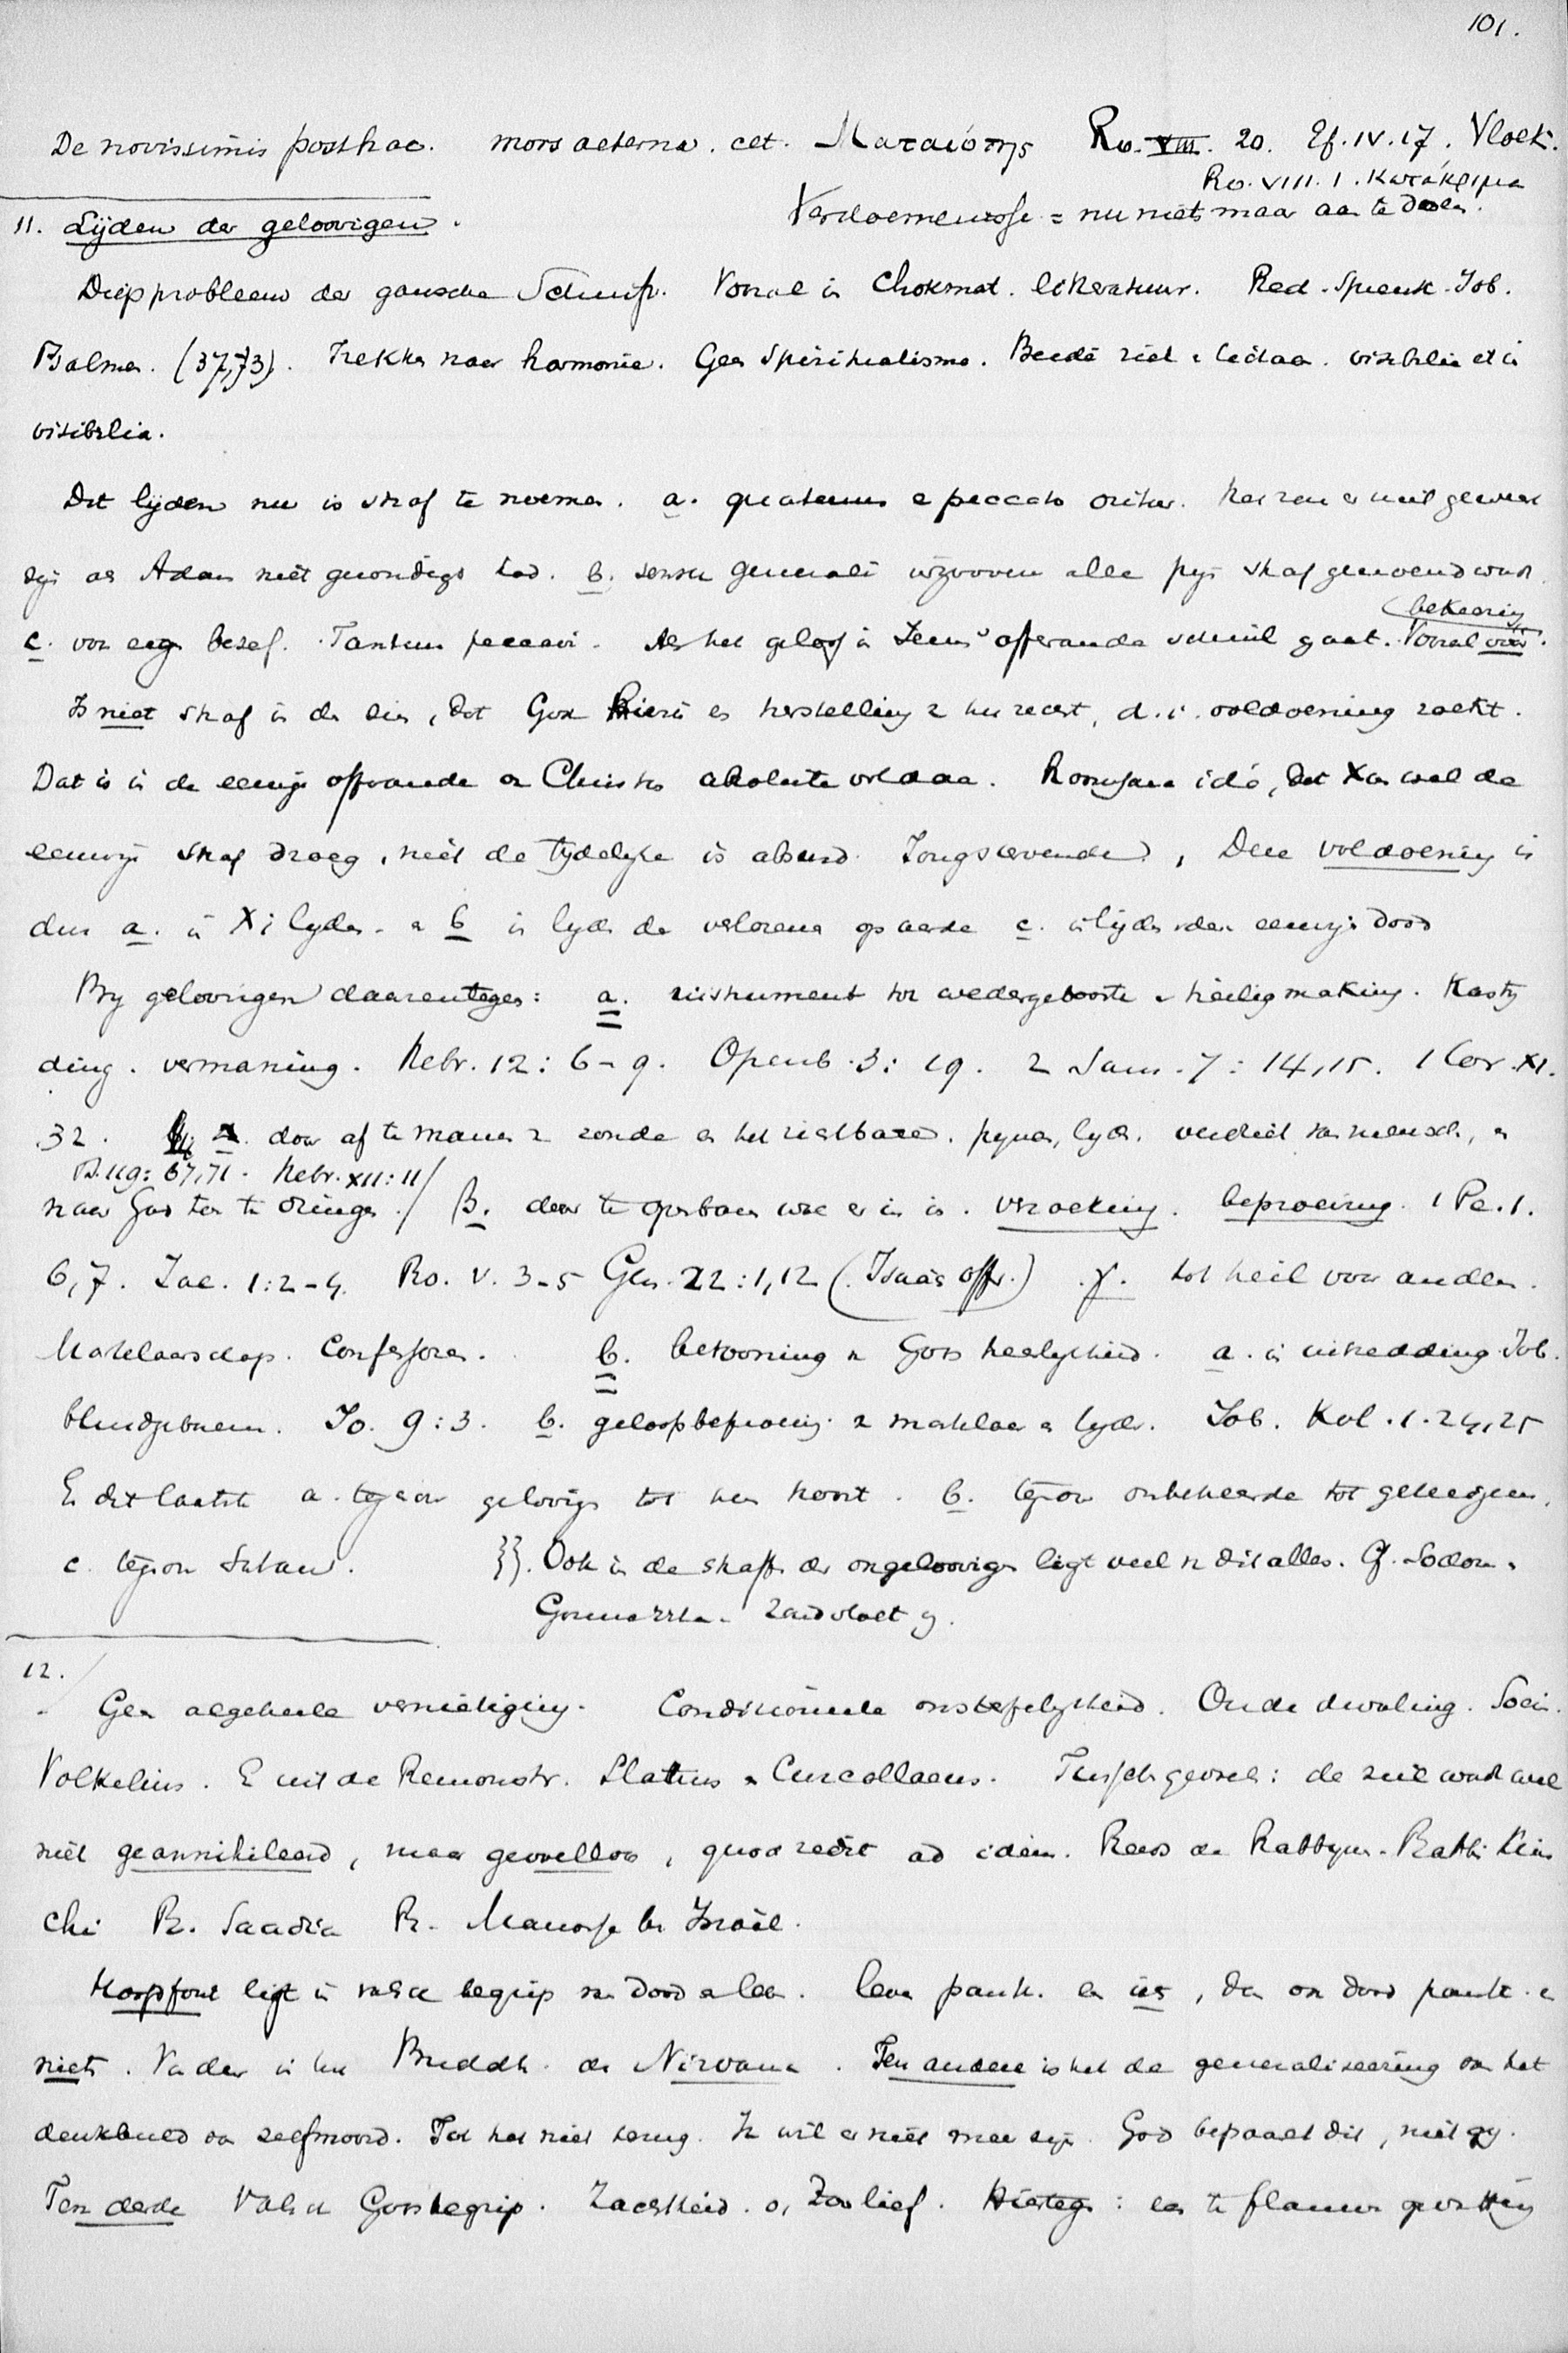 101.
De novissimis posthac. mors aeterna. cet. Ματαιότης Ro. VIII. 20. Ef. IV. 17. Vloek.
Ro. VIII. 1. κατάκριμα
Verdoemenisse = nu niets maar aan te doen.
11. Lijden der geloovigen.
Diep probleem der gansche Schrift. Vooral in Chokmat. litteratuur. Pred. Spreuk. Job.
Psalmen. (37,73). Trekken naar harmonie. Geen Spiritualisme. Beide ziel & lichaam. visibilia et in
visibilia.
Dit lijden nu is straf te noemen. a. quatenus e peccato oritur. Het zou er niet geweest
zijn als Adam niet gezondigd had. b. sensu generali waarvoor alle pijn straf genoemd wordt.
c. voor eigen besef. Tantum peccavi. Als het geloof in Jezus' offerande schuil gaat. Vooral vóór bekeering.
Is niet straf in den zin, dat God hierin een herstelling van het recht, d. i. voldoening zoekt.
Dat is in de eenige offerande van Christus absolute voldaan. Roomsche idé, dat Xus wel de
eeuwige straf droeg, niet de tijdelijke is absurd. Deze voldoening is
dus a. in Xi lijden. & b in lijden der verlorenen op aarde c. in lijden van den eeuwigen dood
By geloovigen daarentegen: a. instrument tot wedergeboorte & heiligmaking. Kasty
ding. vermaning. Hebr. 12: 6-9. Openb. 3: 19. 2 Sam. 7: 14,15. 1 Cor. XI.
32. α. door af te manen van zonde en het zichtbare. pynen, lyden. verdriet van mensch, en
Ps. 119: 67,71. Hebr. XII: 11/
naar God toe te dringen. / β. door te openbaren wat er in is. verzoeking. beproeving. 1 Pe. 1.
6,7. Jac. 1:2-4. Ro. V. 3-5 Gen. 22:1,12 (Isaäcs offer.) γ. tot heil voor anderen.
Martelaarschap. Confessores. b. betooning van Gods heerlykheid. a. in uitredding Job.
blindgeboren. Jo. 9:3. b. geloofsbeproeving van martelaar en lyder. Job. Kol. 1. 24,25
En dit laatste a. tegenover geloovigen tot hun troost. b. tegenover onbekeerde tot getuigenis.
c. tegenover Satan. }}. Ook in de straffen der ongeloovigen ligt veel van dit alles. Cf. Sodom &
Gomorrha. Zondvloed
12.
Geen algeheele vernietiging. Conditioneele onsterfelykheid. Oude dwaling. Socin.
Volkelius. En uit de Remonstr. Slatius & Curcellaeus. de ziel wordt wel
niet geannihileerd, maar gevoelloos, quod redit ad idem. Reeds de Rabbynen. Rabbi Kim
chi R. Saadia R. Manasse ben Israël.
Hoofdfout ligt in valsch begrip van dood en leven. leven panth. en iets, dan ook dood panth. &
niets. Verder in het Buddh. de Nirvana. Ten andere is het de generaliseering van het
denkbeeld van zelfmoord. Tot het niet terug. Ik wil er niet meer zijn. God bepaalt dit, niet gij.
Ten derde Valsch Godsbegrip. Zachtheid. o, Zoo lief. Hiertegen: een te flauwe